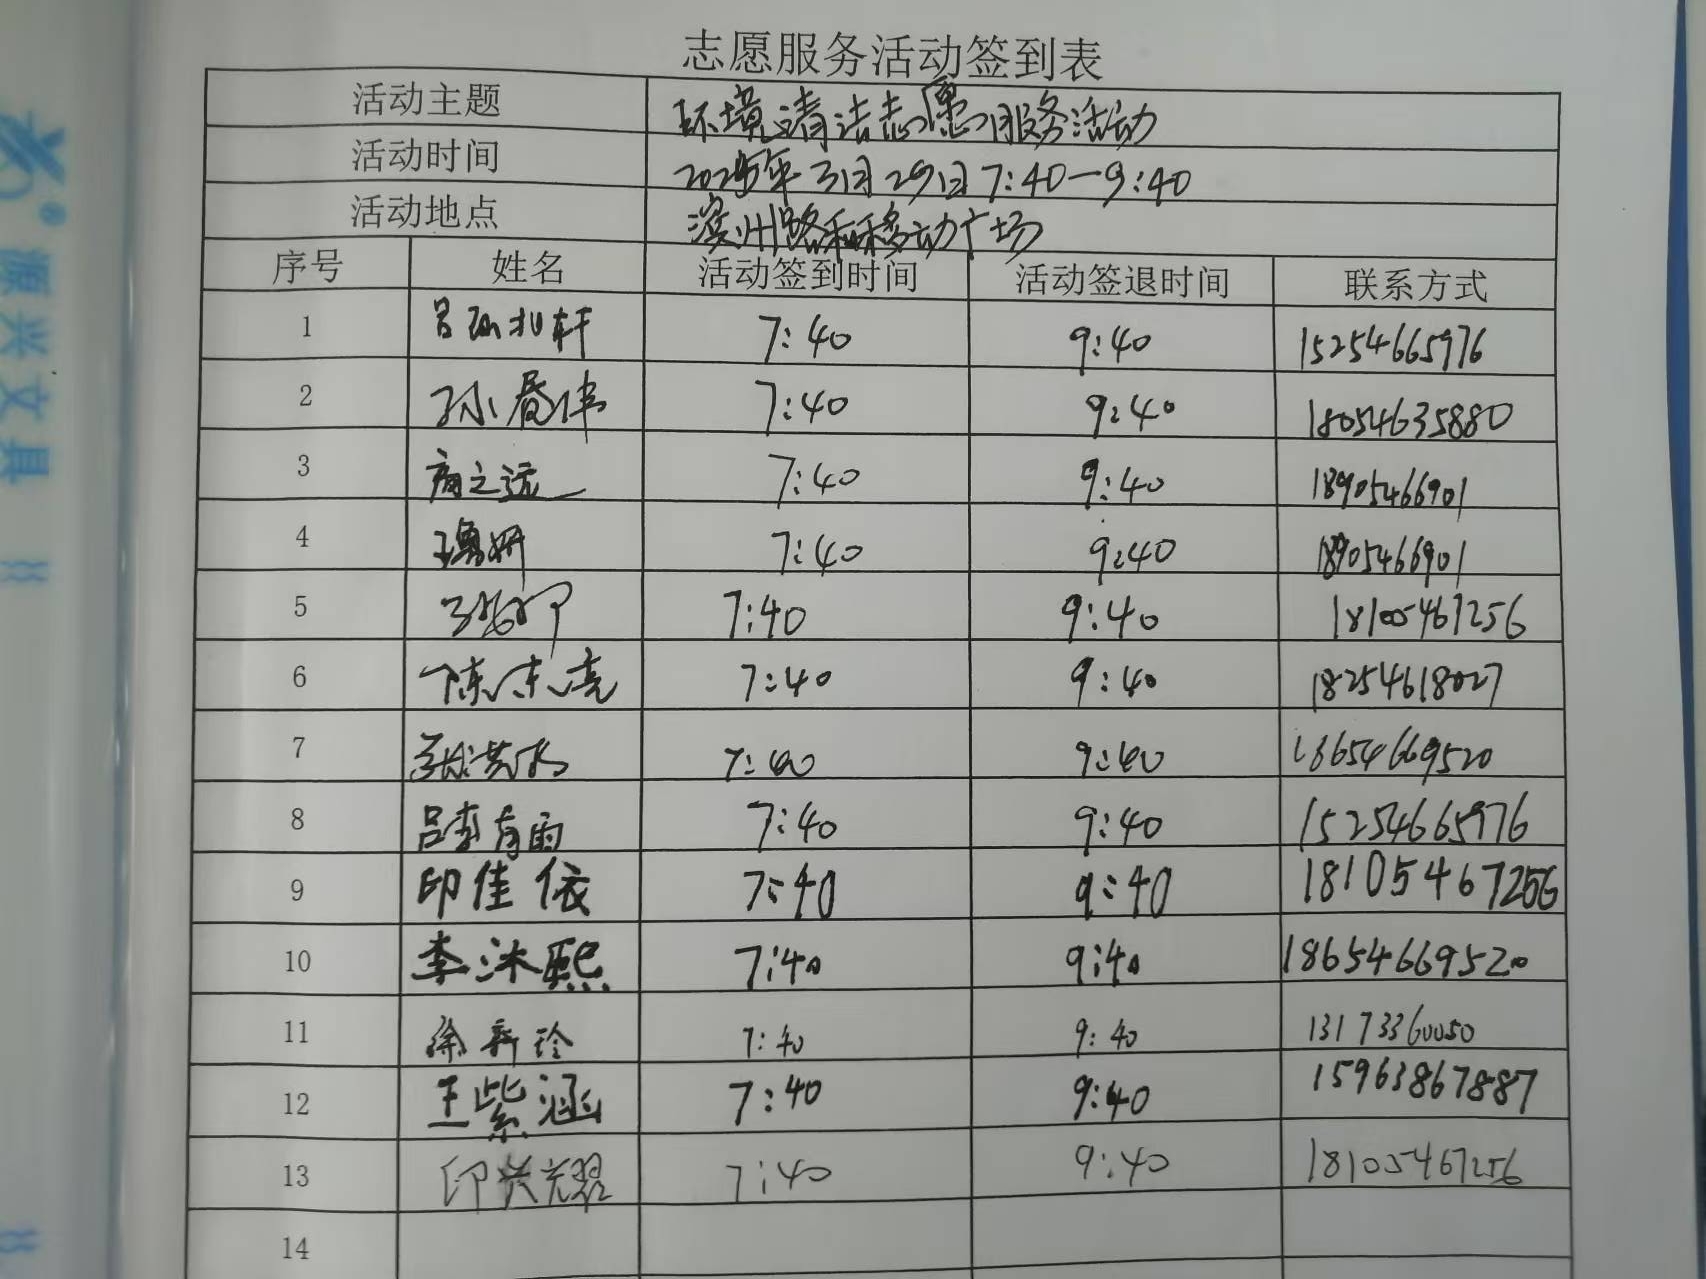 志愿服务活动签到表
活动主题 环境清洁志愿服务活动
活动时间 2025年3月29日7:40-9:40
活动地点 滨州路和移动广场
序号 姓名 活动签到时间 活动签退时间 联系方式
1 7:40 9:40 15254665976
2 孙 7:40 9:40 18054635880
3 商之远 7:40 9:40 18905466901
4 7:40 9:40 18905466901
5 7:40 9:40 18105467256
6 陈东亮 7:40 9:40 18254618027
7 7:40 9:40 18654669520
8 吕 7:40 9:40 15254665976
9 印佳依 7:40 9:40 18105467256
10 李沐熙 7:40 9:40 18654669520
11 徐新玲 7:40 9:40 13173360050
12 王紫涵 7:40 9:40 15963867887
13 印 7:40 9:40 18105467256
14
源兴文具